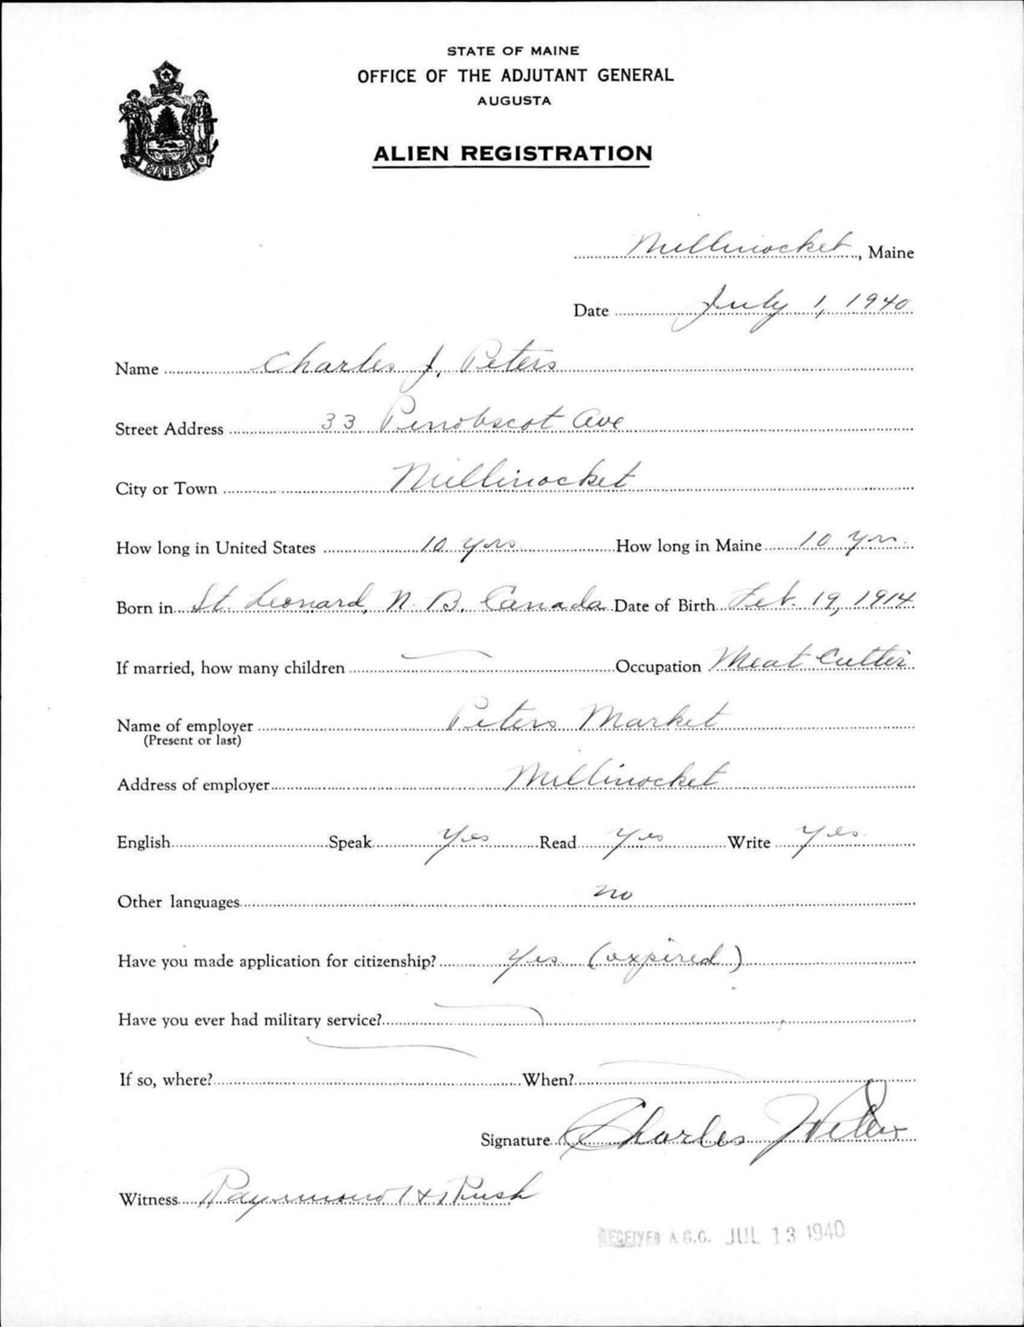 STATE OF MAINE
OFFICE OF THE ADJUTANT GENERAL
AUGUSTA
MAINE
ALIEN REGISTRATION
Millinocket, Maine
Date July 1, 1940
Name Charles J. Peters
Street Address 33 Penobscot Ave
City or Town Millinocket
How long in United States 10 yrs How long in Maine 10 yrs
Born in St. Leonard, N. B., Canada Date of Birth Feb. 19, 1914
If married, how many children — Occupation Meat Cutter
Name of employer Peters Market
(Present or last)
Address of employer Millinocket
English Speak Yes Read Yes Write Yes
Other languages no
Have you made application for citizenship? Yes (expired)
Have you ever had military service? —
If so, where? — When? —
Signature Charles J Peters
Witness Raymond H Rush
RECEIVED A.G.O. JUL 13 1940